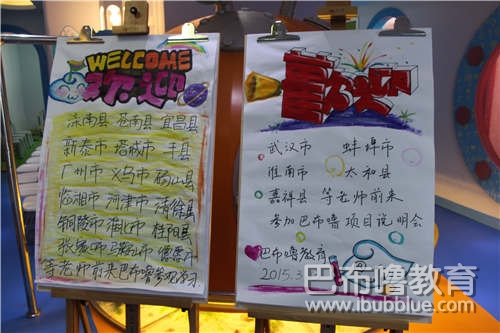 WELCOME
欢迎
滦南县 苍南县 宜昌县
新泰市 塔城市 千县
广州市 义乌市 砀山县
临湘市 河津市 清徐县
铜陵市 淮北市 桂阳县
市 马鞍山市 市
等老师前来巴布噜参观学习
欢迎
武汉市 蚌埠市
淮南市 太和县
嘉祥县 等老师前来
参加巴布噜项目说明会
巴布噜教育
2015.3
巴布噜教育
www.ibubblue.com